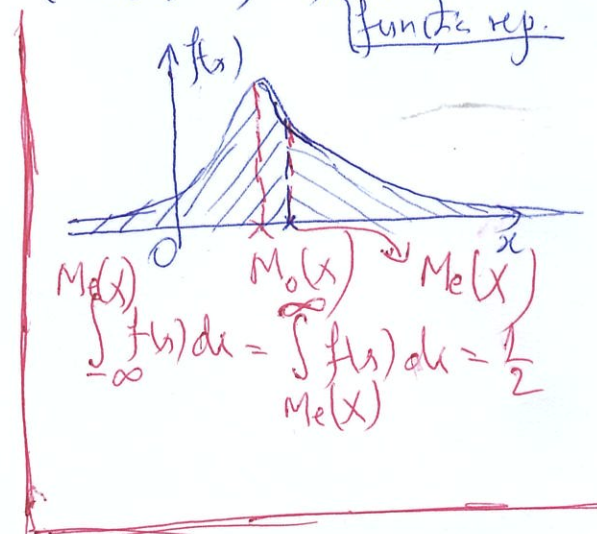 functia rep.
f(x)
O
x
Mo(X)
Me(X)
∫_{-∞}^{Me(X)} f(x) dx = ∫_{Me(X)}^{∞} f(x) dx = 1/2